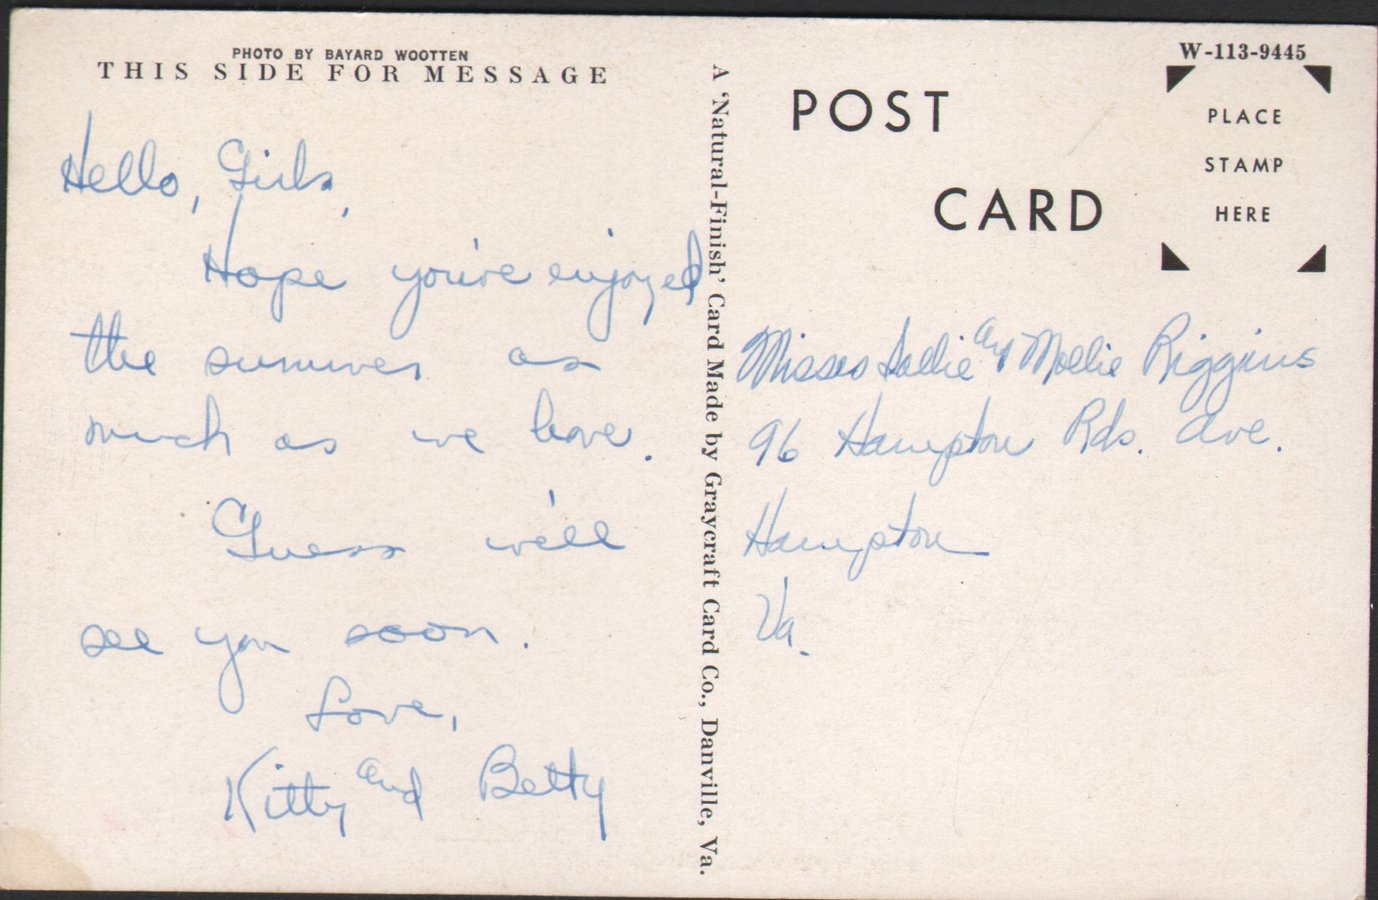 PHOTO BY BAYARD WOOTTEN
THIS SIDE FOR MESSAGE
Hello, Girls,
Hope you've enjoyed
the summer as
much as we have.
Guess we'll
see you soon.
Love,
Kitty and Betty
A 'Natural-Finish' Card Made by Graycraft Card Co., Danville, Va.
POST
CARD
W-113-9445
PLACE
STAMP
HERE
Misses Sallie and Mollie Riggins
96 Hampton Rds. Ave.
Hampton
Va.